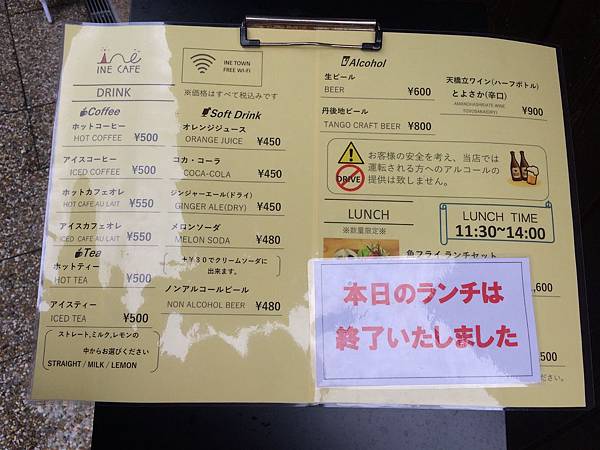 ine
INE CAFE
DRINK
INE TOWN
FREE Wi-Fi
※価格はすべて税込みです
Coffee
ホットコーヒー
HOT COFFEE ¥500
アイスコーヒー
ICED COFFEE ¥500
ホットカフェオレ
HOT CAFE AU LAIT ¥550
アイスカフェオレ
ICED CAFE AU LAIT ¥550
Tea
ホットティー
HOT TEA ¥500
アイスティー
ICED TEA ¥500
ストレート,ミルク,レモンの
中からお選びください
STRAIGHT / MILK / LEMON
Soft Drink
オレンジジュース
ORANGE JUICE ¥450
コカ・コーラ
COCA-COLA ¥450
ジンジャーエール(ドライ)
GINGER ALE(DRY) ¥450
メロンソーダ
MELON SODA ¥480
+¥30でクリームソーダに
出来ます。
ノンアルコールビール
NON ALCOHOL BEER ¥480
Alcohol
生ビール
BEER ¥600
丹後地ビール
TANGO CRAFT BEER ¥800
天橋立ワイン(ハーフボトル)
とよさか(辛口)
¥900
DRIVE
お客様の安全を考え、当店では
運転される方へのアルコールの
提供は致しません。
LUNCH
※数量限定※
LUNCH TIME
11:30~14:00
魚フライ ランチセット
,600
本日のランチは
終了いたしました
500
ださい。